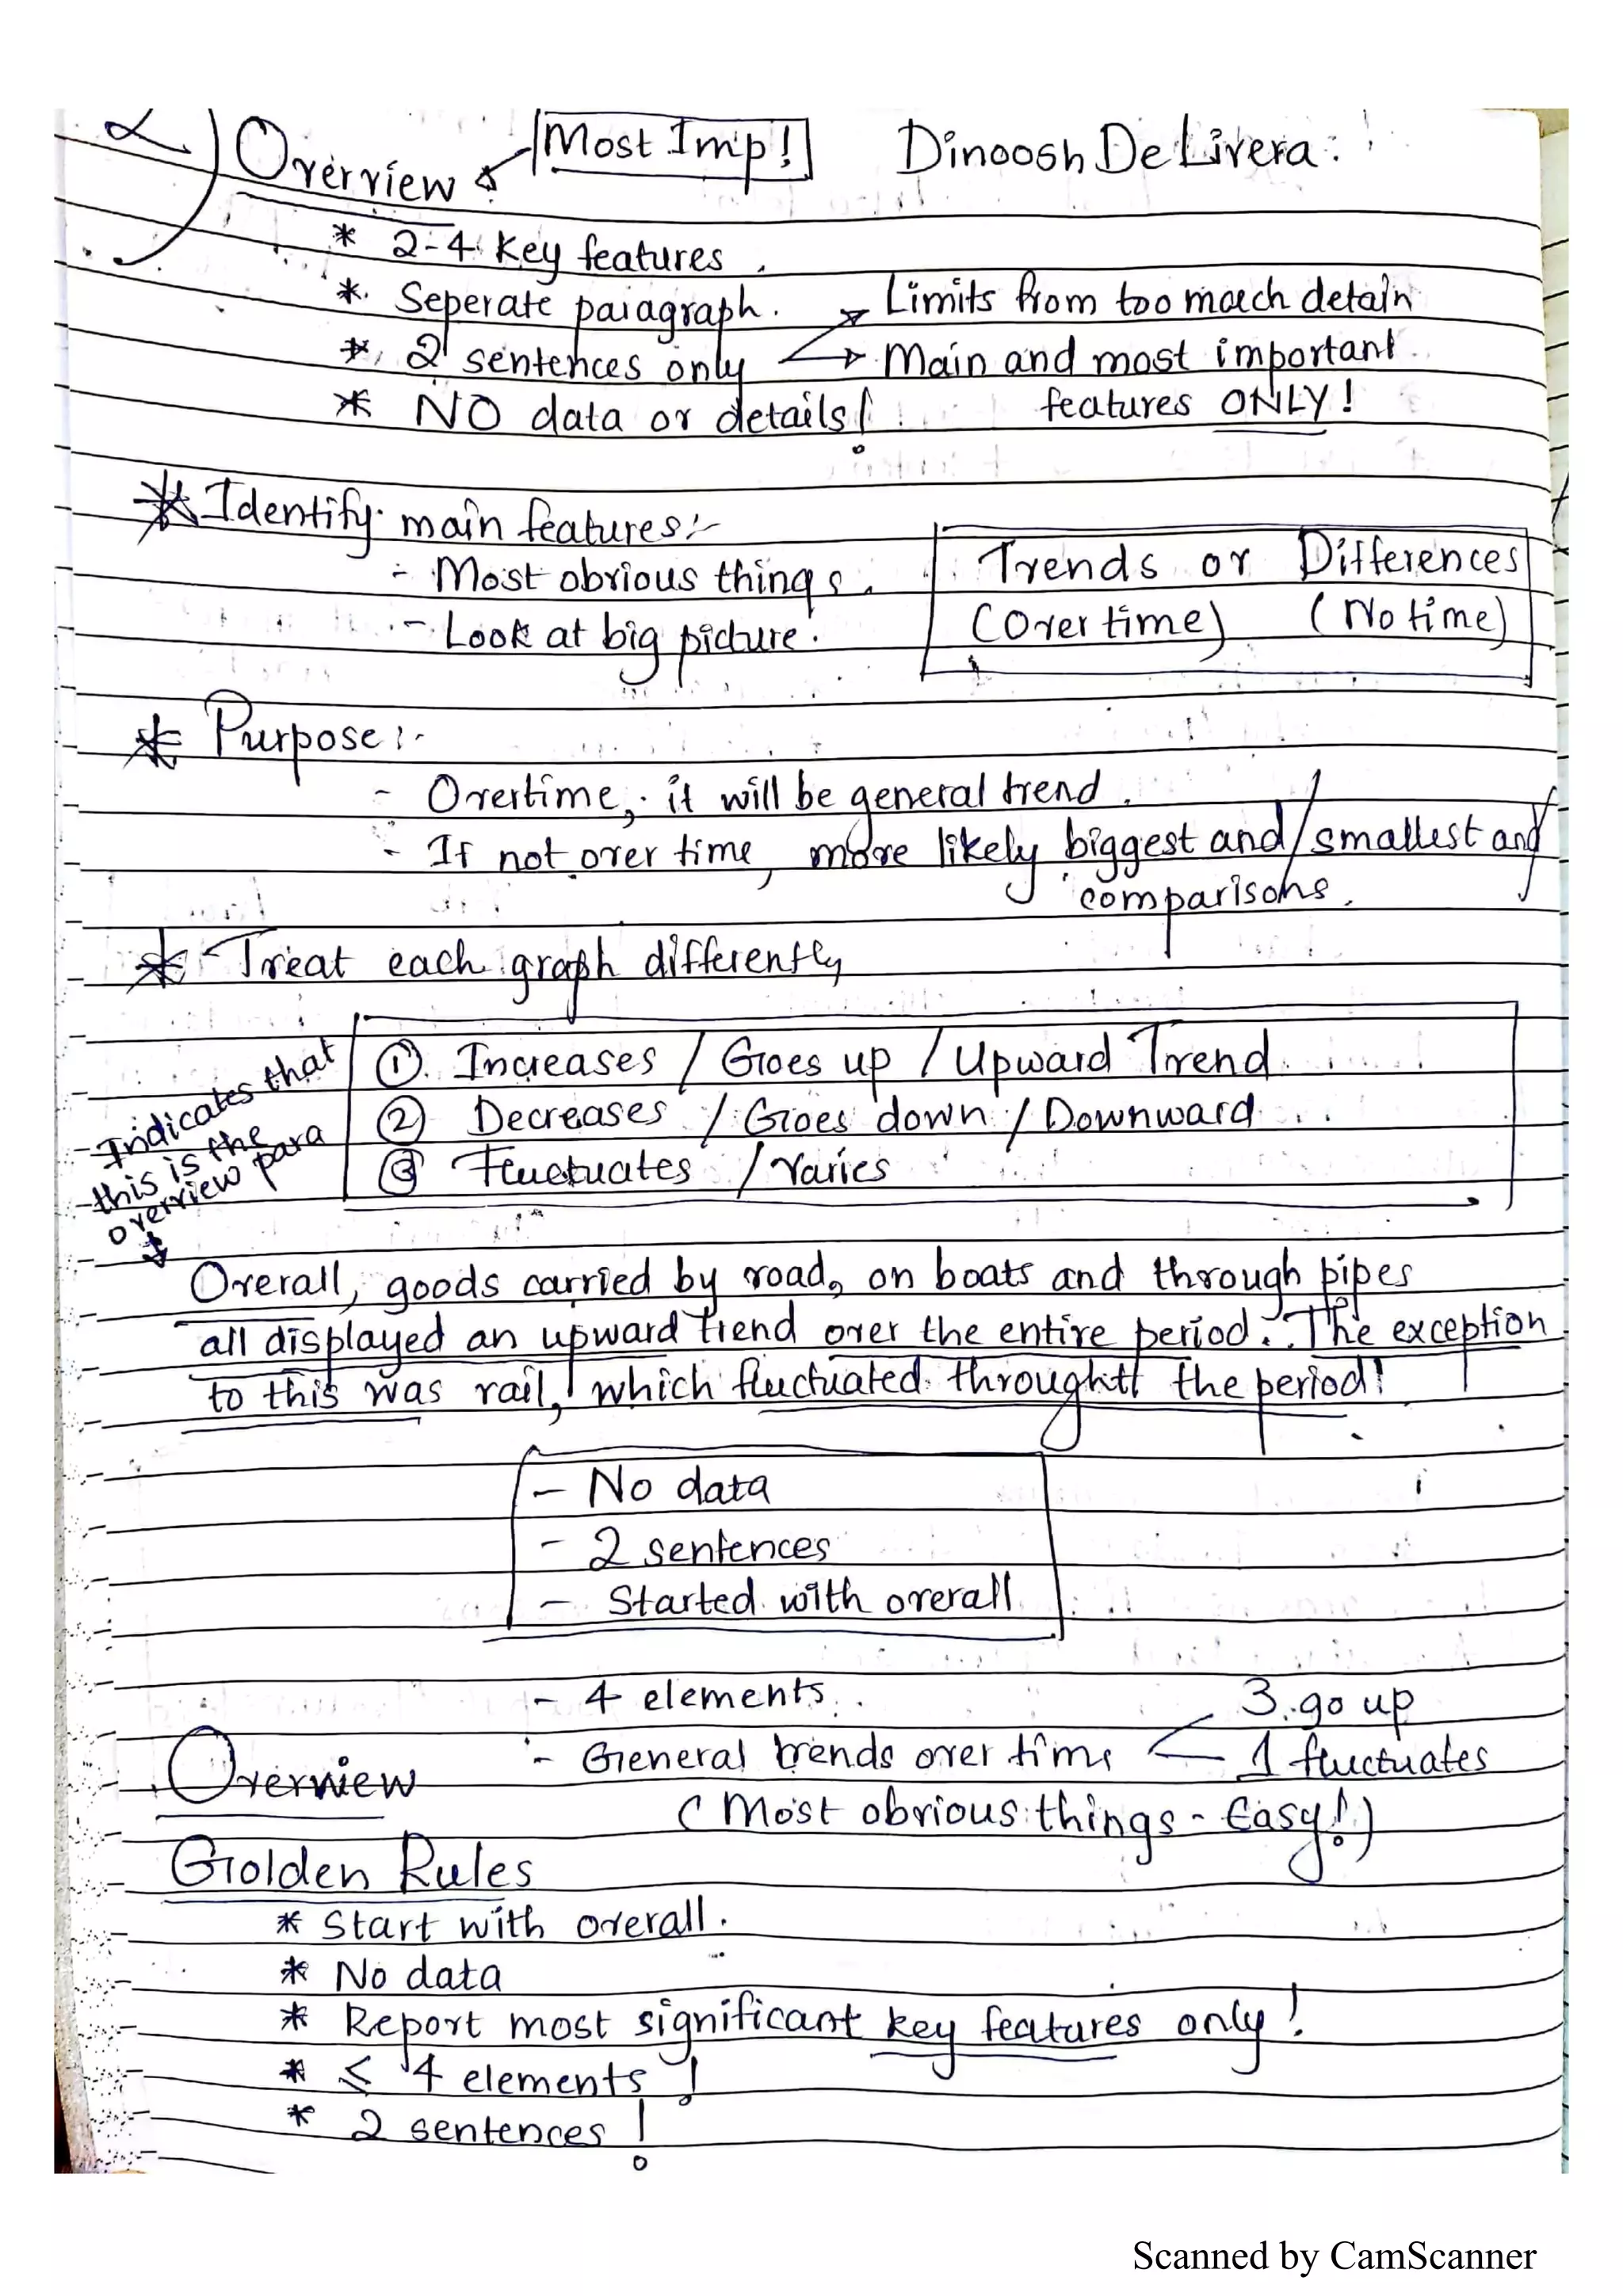 2) Overview Most Imp! Dinoosh De Livera.
* 2-4 Key features.
* Seperate paragraph. Limits from too much detain
* 2 sentences only Main and most important
* NO data or details! features ONLY!
* Identify main features:-
- Most obvious things. Trends or Differences
- Look at big picture. (Over time) (No time)
* Purpose:-
- Overtime, it will be general trend.
- If not over time, more likely biggest and/smallest and/
comparisons.
* Treat each graph differently
① Increases / Goes up / Upward Trend
② Decreases / Goes down / Downward
③ Fluctuates / Varies
Indicates that
this is the
overview para
Overall, goods carried by road, on boats and through pipes
all displayed an upward trend over the entire period. The exception
to this was rail, which fluctuated the period!
- No data
- 2 sentences
- Started with overall
- 4 elements. 3 go up
Overview - General trends over time 1 fluctuates
(Most obvious things - Easy!)
Golden Rules
* Start with overall.
* No data
* Report most significant key features only!
* ≤ 4 elements!
* 2 sentences!
Scanned by CamScanner